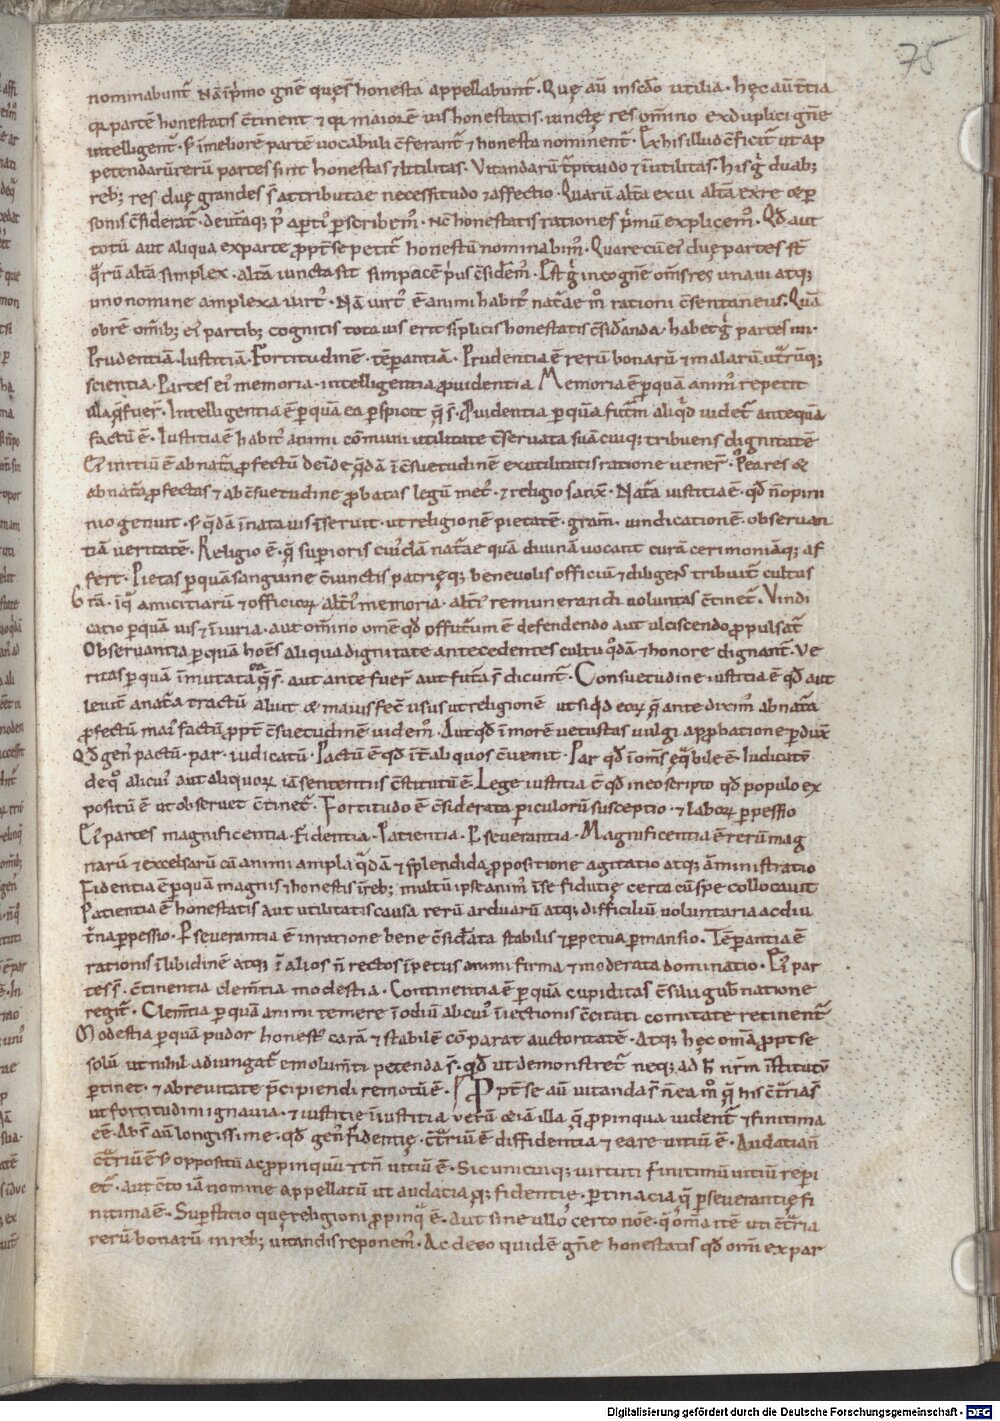 75
nominabunt᷑ Nā īp̄mo gn̄e quęs̄ honesta appellabunt᷑. Quę aū insc̄do utilia. hęc aūt̄n̄ia
qr̄ partē honestatis c̄tinent ⁊ qr̄ maiorē uis honestatis. iunctę res om̄ino exduplici gn̄e
intelligent᷑. s; īmeliorē partē uocabuli c̄ferant᷑ ⁊ honesta nominent᷑. Ex his illud c̄ficit᷑ ut ap
petendarūrerū partes sint honestas ⁊ utilitas. Vitandarū t᷑pitudo ⁊ īutilitas. his gͥ duab;
reb; res duę grandes s̄ attributae necessitudo ⁊ affectio. Quarū altā exui altā exre ⁊ p̱
sonis c̄siderat᷑. deut̄aq; p᷑ apti᷑ p̱scribem᷑. Nc̄ honestatis rationes p̓mū explicem᷑. Qd̄ aut
totū aut aliqua exparte ꝓpt᷑se petit᷑ honestū nominabim᷑. Quare cū ei᷑ duę partes st̄
q̄rū altā simplex. altā iuncta sit simplicē p̓us c̄sidem᷑. Est gͥ ineo gn̄e om̄s res unaui atq;
uno nomine amplexa uirt᷑. Nā uirt᷑ ē animi habit᷑ nat᷑ae m̊ rationi c̄sentaneus. Quā
obrē om̄ib; ei᷑ partib; cognitis tota uis erit sīplicis honestatis c̄sid̄anda. habet gͥ partes iiii.
Prudentiā. Iustitiā. Fortitudinē. tēp̱antiā. Prudentia ē rerū bonarū ⁊ malarū ut᷑rūq;
scientia. Partes ei᷑ memoria. intelligentia ꝓuidentia Memoria ē p̱quā anim᷑ repetit
illa q̄ fuer̄. Intelligentia ē p̱quā ea p̱spicit q̄ s̄. Ꝓuidentia p̱quā fut᷑m aliq̓d uidet᷑ antequā
factū ē. Iustitia ē habit᷑ animi cōmuni utilitate c̄seruata suā cuiq; tribuens dignitatē
Ei᷑ initiū ē ab nat᷑a ꝓfectū deīde q̄dā ī c̄suetudinē exutilitatis ratione uener̄. Postea res ⁊
ab nat᷑a ꝓfectas ⁊ ab c̄suetudine ꝓbatas legū met᷑. ⁊ religio sanx̄. Nat᷑a iustitia ē. qd̄ n̄ opini
nio genuit. s; q̄dā īnata uis īseruit. ut religionē pietatē. gram̄. uindicationē. obseruan
tiā ueritatē. Religio ē. q̄ superioris cui᷑dā nat᷑ae quā diuinā uocant curā cerimoniāq; af
fert. Pietas p̱quā sanguine c̄iunctis patrięq; beneuolis officiū ⁊ diligens tribuit᷑ cultus
Gr̄a. īq̄ amicitiarū ⁊ officioꝝ alti᷑ memoria. alti᷑ remunerandi uoluntas c̄tinet᷑. Vindi
catio p̱quā uis ⁊ īiuria. aut om̄ino om̄e qd̄ offut᷑um ē defendendo aut ulciscendo ꝓpulsat᷑
Obseruantia p̱quā hoēs aliqua dignitate antecedentes cultu q̄dā ⁊ honore dignant᷑. Ve
ritas p̱quā īmutata ea q̄ s̄. aut ante fuer̄ aut fut᷑a s̄ dicunt᷑. Consuetudine iustitia ē qd̄ aut
leuit̄ anat᷑a tractū aluit ⁊ maius fec̄ usus ut religionē ut siq̓d eoꝝ q̄ ante dixim᷑ abnat᷑a
ꝓfectū mai᷑ factū ꝓpt᷑ c̄suetudinē uidem᷑. Aut qd̄ ī morē uetustas uulgi approbatione p̱dux̄
Qd̄ gen᷑ pactū. par. iudicatū. Pactū ē qd̄ int̄ aliquos c̄uenit. Par qd̄ īom̄s eq̄bile ē. Iudicatū
deq̊ alicui᷑ aut aliquoꝝ iā sententiis c̄stitutū ē. Lege iustitia ē qd̄ ineo scripto qd̄ populo ex
positū ē ut obseruet c̄tinet᷑. Fortitudo ē c̄siderata p̱iculorū susceptio. ⁊ laboꝝ p̱pessio
Ei᷑ partes magnificentia. Fidentia. Patientia. Pseuerantia. Magnificentia ē rerū mag
narū ⁊ excelsarū cū animi ampla q̄dā ⁊ splendida ꝓpositione agitatio atq; āministratio
Fidentia ē p̱quā magnis ⁊ honestis īreb; multū ipse anim᷑ īse fiducię certa cū spe collocauit
Patientia ē honestatis aut utilitatis causa rerū arduarū atq; difficiliū uoluntaria ac diu
t᷑na p̱pessio. Pseuerantia ē inratione bene c̄sid̄ata stabilis ⁊ p̱petua p̱mansio. Tēp̱antia ē
rationis ī libidinē atq; ī alios n̄ rectos īpetus animi firma ⁊ moderata dominatio. Ei᷑ par
tes s̄. c̄tinentia clem̄tia modestia. Continentia ē p̱quā cupiditas c̄silii gub̄natione
regit᷑. Clem̄tia p̱quā animi temere ī odiū alicui᷑ īiectionis c̄citati comitate retinent᷑
Modestia p̱quā pudor honest᷑ carā ⁊ stabilē cō parat auctoritatē. Atq; hęc om̄a ꝓpt᷑se
solū ut nihil adiungat᷑ emolum̄ti petenda s̄. qd̄ ut demonstret᷑ neq; ad h̄ nr̄m īstitutū
p̱tinet. ⁊ abreuitate p̄cipiendi remotū ē. Propt᷑ se aū uitanda s̄ n̄ ea m̊ q̄ his c̄t᷑ria s̄
ut fortitudini ignauia. ⁊ iustitie īiustitia uerū ⁊ iā illa q̄ ꝓpinqua uident᷑ ⁊ finitima
eē. Abs̄ aū longissime. qd̄ gen᷑ fidentię. c̄t᷑riū ē diffidentia ⁊ eare uitiū ē. Audatia n̄
c̄t᷑riū ē s; oppositū ac ꝓpinquū ⁊ tn̄ uitiū ē. Sic unicuiq; uirtuti finitimū uitiū repi
et᷑. aut c̄to iā nomine appellatū ut audacia q; fidentię. p̱tinacia q̄ p̱seuerantię fi
nitima ē. Supstitio quę religioni ꝓpinq̄ ē. Aut sine ullo certo noīe. q̄ om̄a itē uti c̄t᷑ria
rerū bonarū inreb; uitandis reponem᷑. Ac deeo quidē gn̄e honestatis qd̄ omi expar
Digitalisierung gefördert durch die Deutsche Forschungsgemeinschaft - DFG